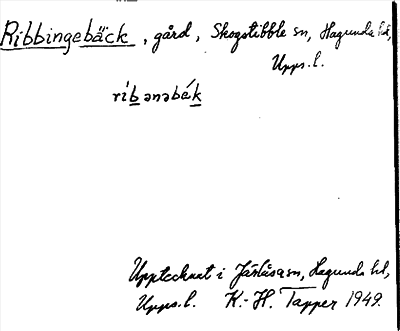 Ribbingebäck, gård, Skogstibble sn, Hagunda hd,
Upps. l.
ríb̲ənəbék̲
Upptecknat i Järlåsa sn, Hagunda hd,
Upps. l. K.-H. Tapper 1949.